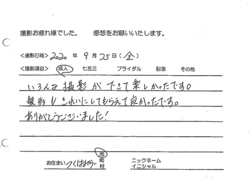 撮影お疲れ様でした。 感想をお願いいたします。
<撮影日時> 2020年 9月 25日(金)
<撮影項目> 成人 七五三 ブライダル 記念 その他
いろんな撮影ができて楽しかったです。
髪形もきれいにしてもらえて良かったです。
ありがとうございました!
お住まい つくばみらい 市 町 村
ニックネーム イニシャル